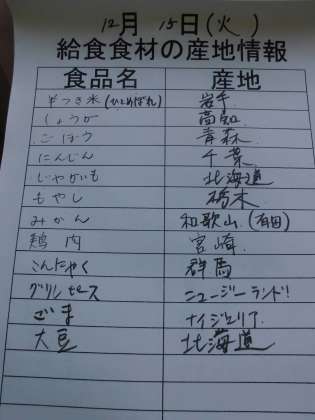 12月 15日(火)
給食食材の産地情報
食品名 産地
半つき米(ひとめぼれ) 岩手
しょうが 高知
ごぼう 青森
にんじん 千葉
じゃがいも 北海道
もやし 栃木
みかん 和歌山(有田)
鶏肉 宮崎
こんにゃく 群馬
グリンピース ニュージーランド
ごま ナイジェリア
大豆 北海道